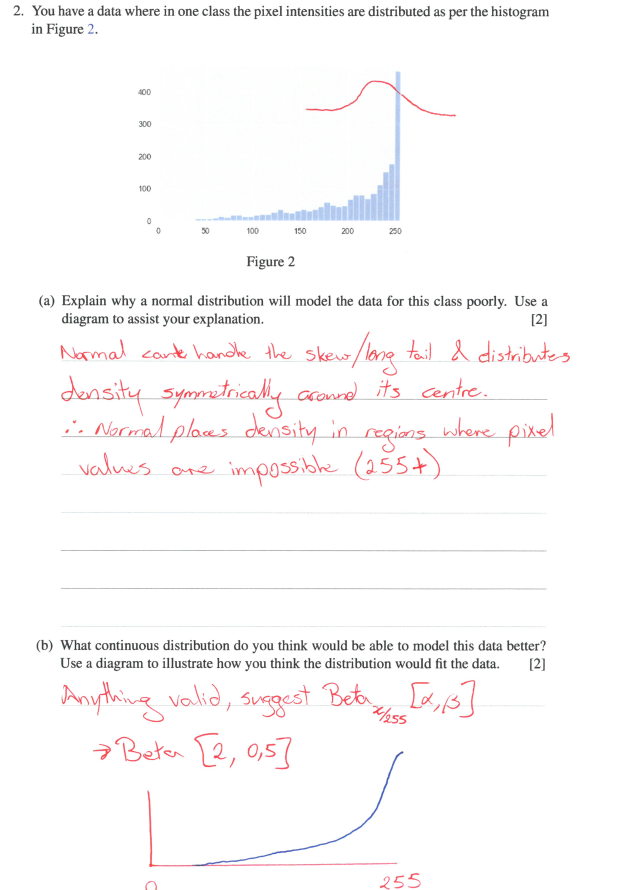 2. You have a data where in one class the pixel intensities are distributed as per the histogram
in Figure 2.
400
300
200
100
0
0 50 100 150 200 250
Figure 2
(a) Explain why a normal distribution will model the data for this class poorly. Use a
diagram to assist your explanation. [2]
Normal can't handle the skew/long tail & distributes
density symmetrically around its centre.
∴ Normal places density in regions where pixel
values are impossible (255+)
(b) What continuous distribution do you think would be able to model this data better?
Use a diagram to illustrate how you think the distribution would fit the data. [2]
Anything valid, suggest Beta x/255 [α,β]
→ Beta [2, 0,5]
0 255